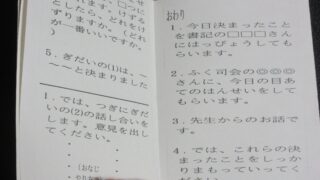 としたら、どれをけ
ずりますか。(どれ
が一番いいですか。
)
5．ぎだいの(1)は、ー
ーーと決まりました
1．では、つぎにぎだ
いの(2)の話し合いを
します。意見を出し
てください。
(おなじ
おわり
1．今日決まったこと
を書記の□□□さん
にはっぴょうしてもら
います。
2．ふく司会の◎◎◎
さんに、今日の目あ
てのはんせいをして
もらいます。
3．先生からのお話で
す。
4．では、これらの決
まったことをしっか
りまもっていってく
ださい。